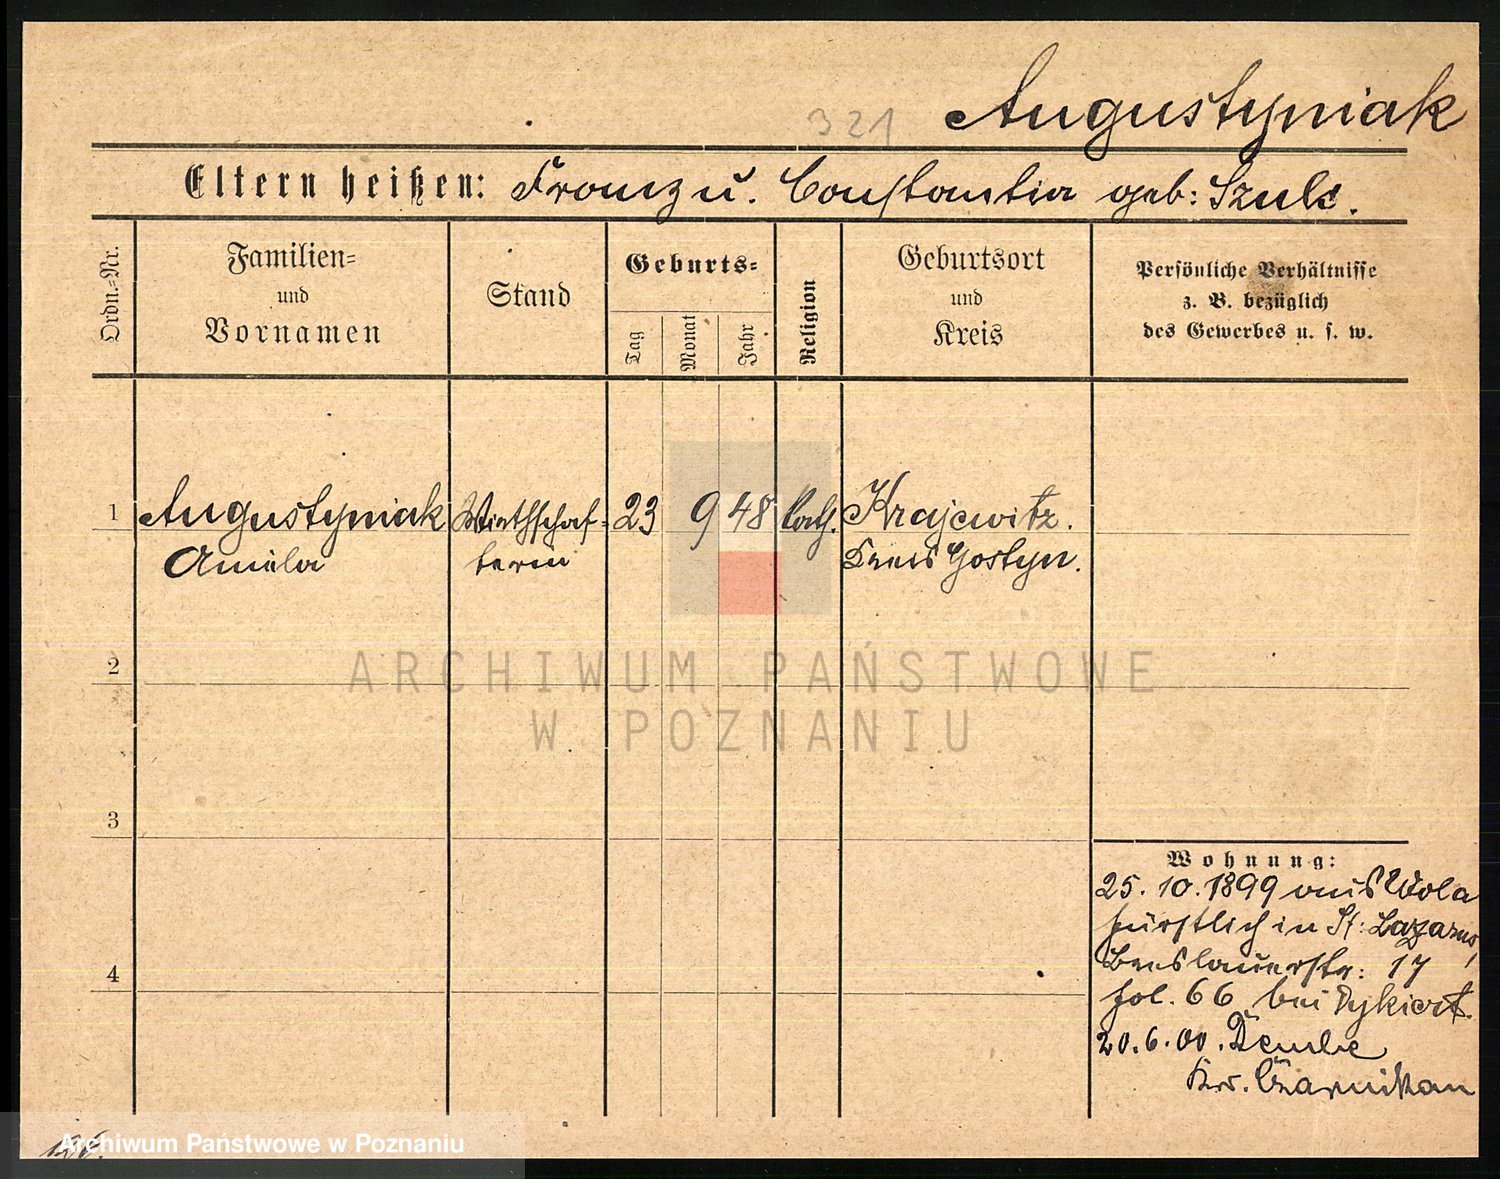 321
Augustyniak
Eltern heißen: Franz u. Constantia geb: Szulc.
Ordn.-Nr.
Familien- und Vornamen
Stand
Geburts-
Tag
Monat
Jahr
Religion
Geburtsort und Kreis
Persönliche Verhältnisse
z. B. bezüglich
des Gewerbes u. s. w.
1 Augustyniak Wirthschaf- 23 9 48 kath. Krajewitz.
Amila terin Kreis Gostyn.
2
3
4
Wohnung:
25. 10. 1899 aus Wola
fürstlich in St: Lazarus,
Breslauerstr: 17
fol. 66 bei Dykiert.
20. 6. 00. Dembe
Kr. Czarnikau
ARCHIWUM PAŃSTWOWE
W POZNANIU
Archiwum Państwowe w Poznaniu